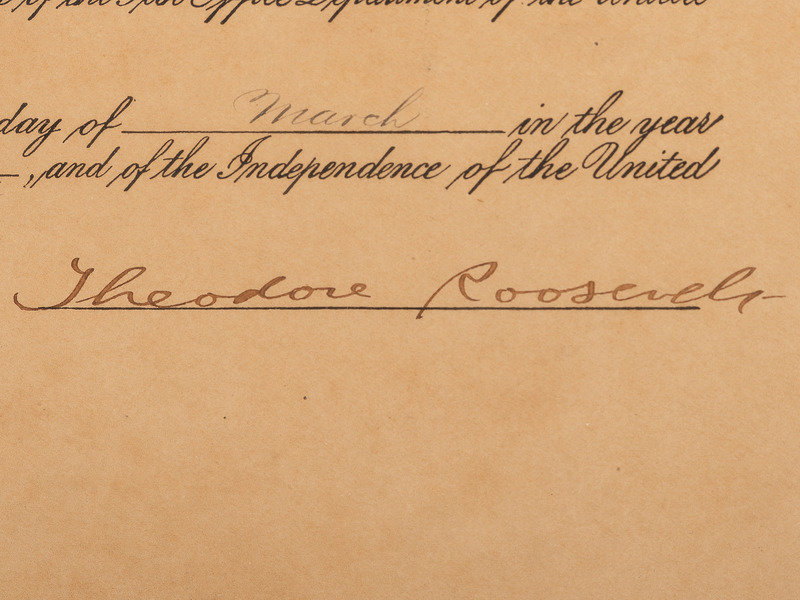 of the Post Office Department of the United
day of March in the year
, and of the Independence of the United
Theodore Roosevelt